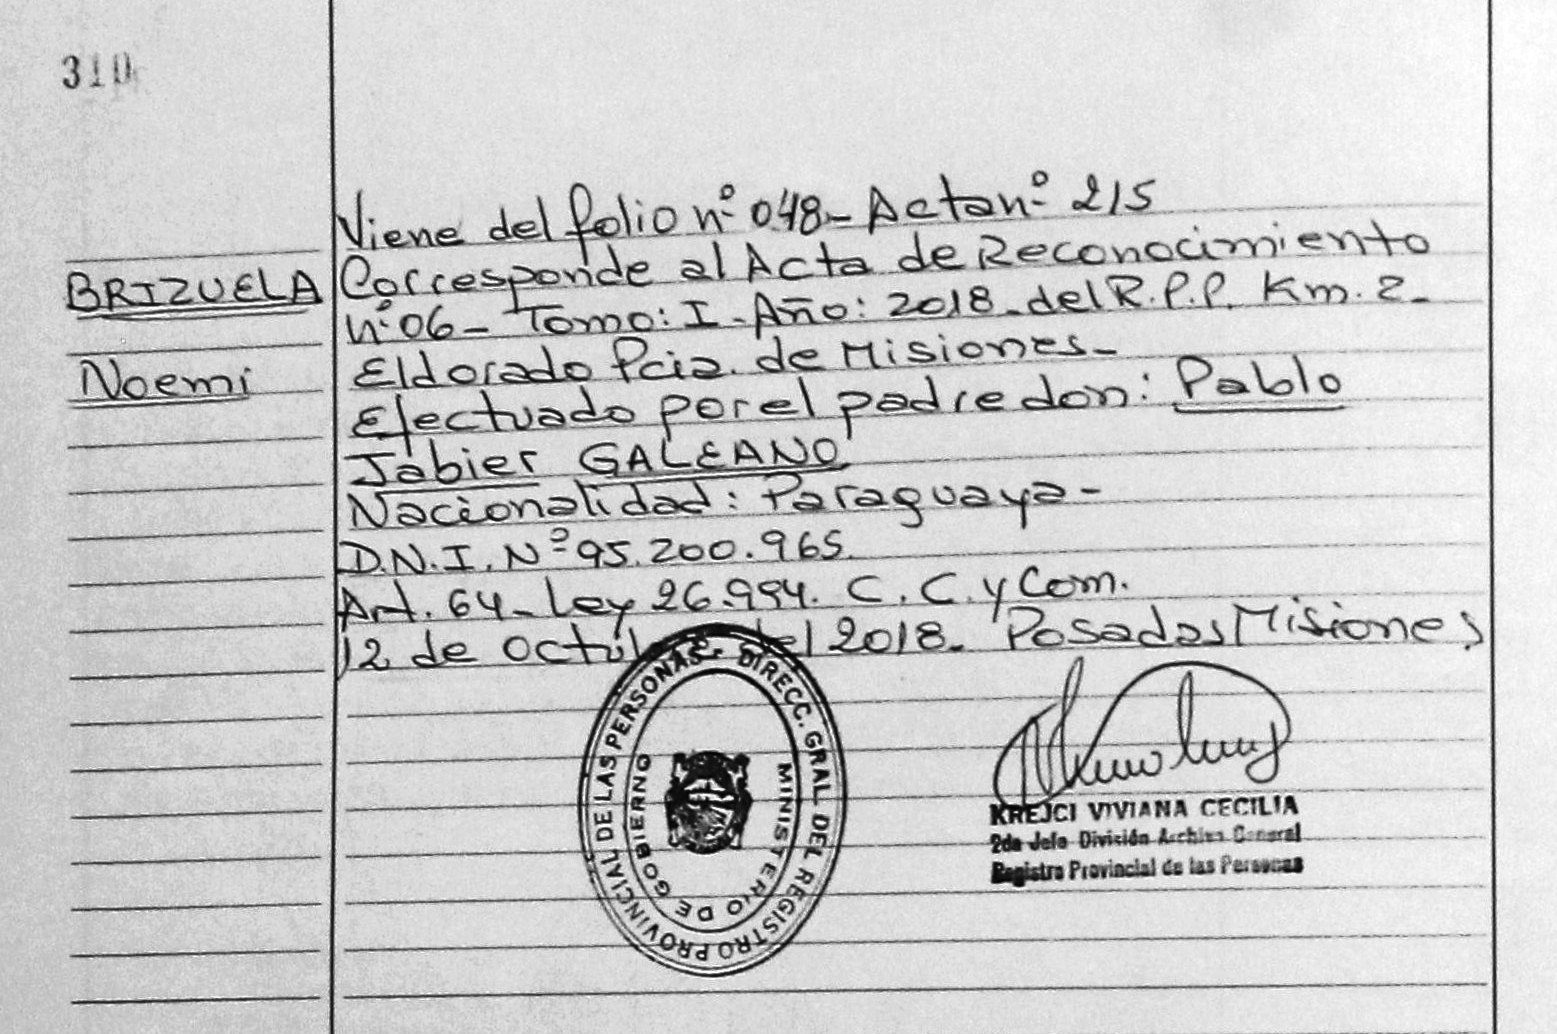 310
Viene del folio nº 048- Acta nº 215
BRIZUELA
Corresponde al Acta de Reconocimiento
nº 06- Tomo: I - Año: 2018 - del R.P.P. Km. 2-
Noemi
Eldorado Pcia. de Misiones-
Efectuado por el padre don: Pablo
Jabier GALEANO
Nacionalidad: Paraguaya-
D.N.I. Nº 95.200.965
Art. 64- Ley 26.994. C.C. y Com.
12 de del 2018- Posadas Misiones
DIRECC. GRAL DEL REGISTRO PROVINCIAL DE LAS PERSONAS
MINISTERIO DE GOBIERNO
KREJCI VIVIANA CECILIA
2da Jefe División Archivo General
Registro Provincial de las Personas